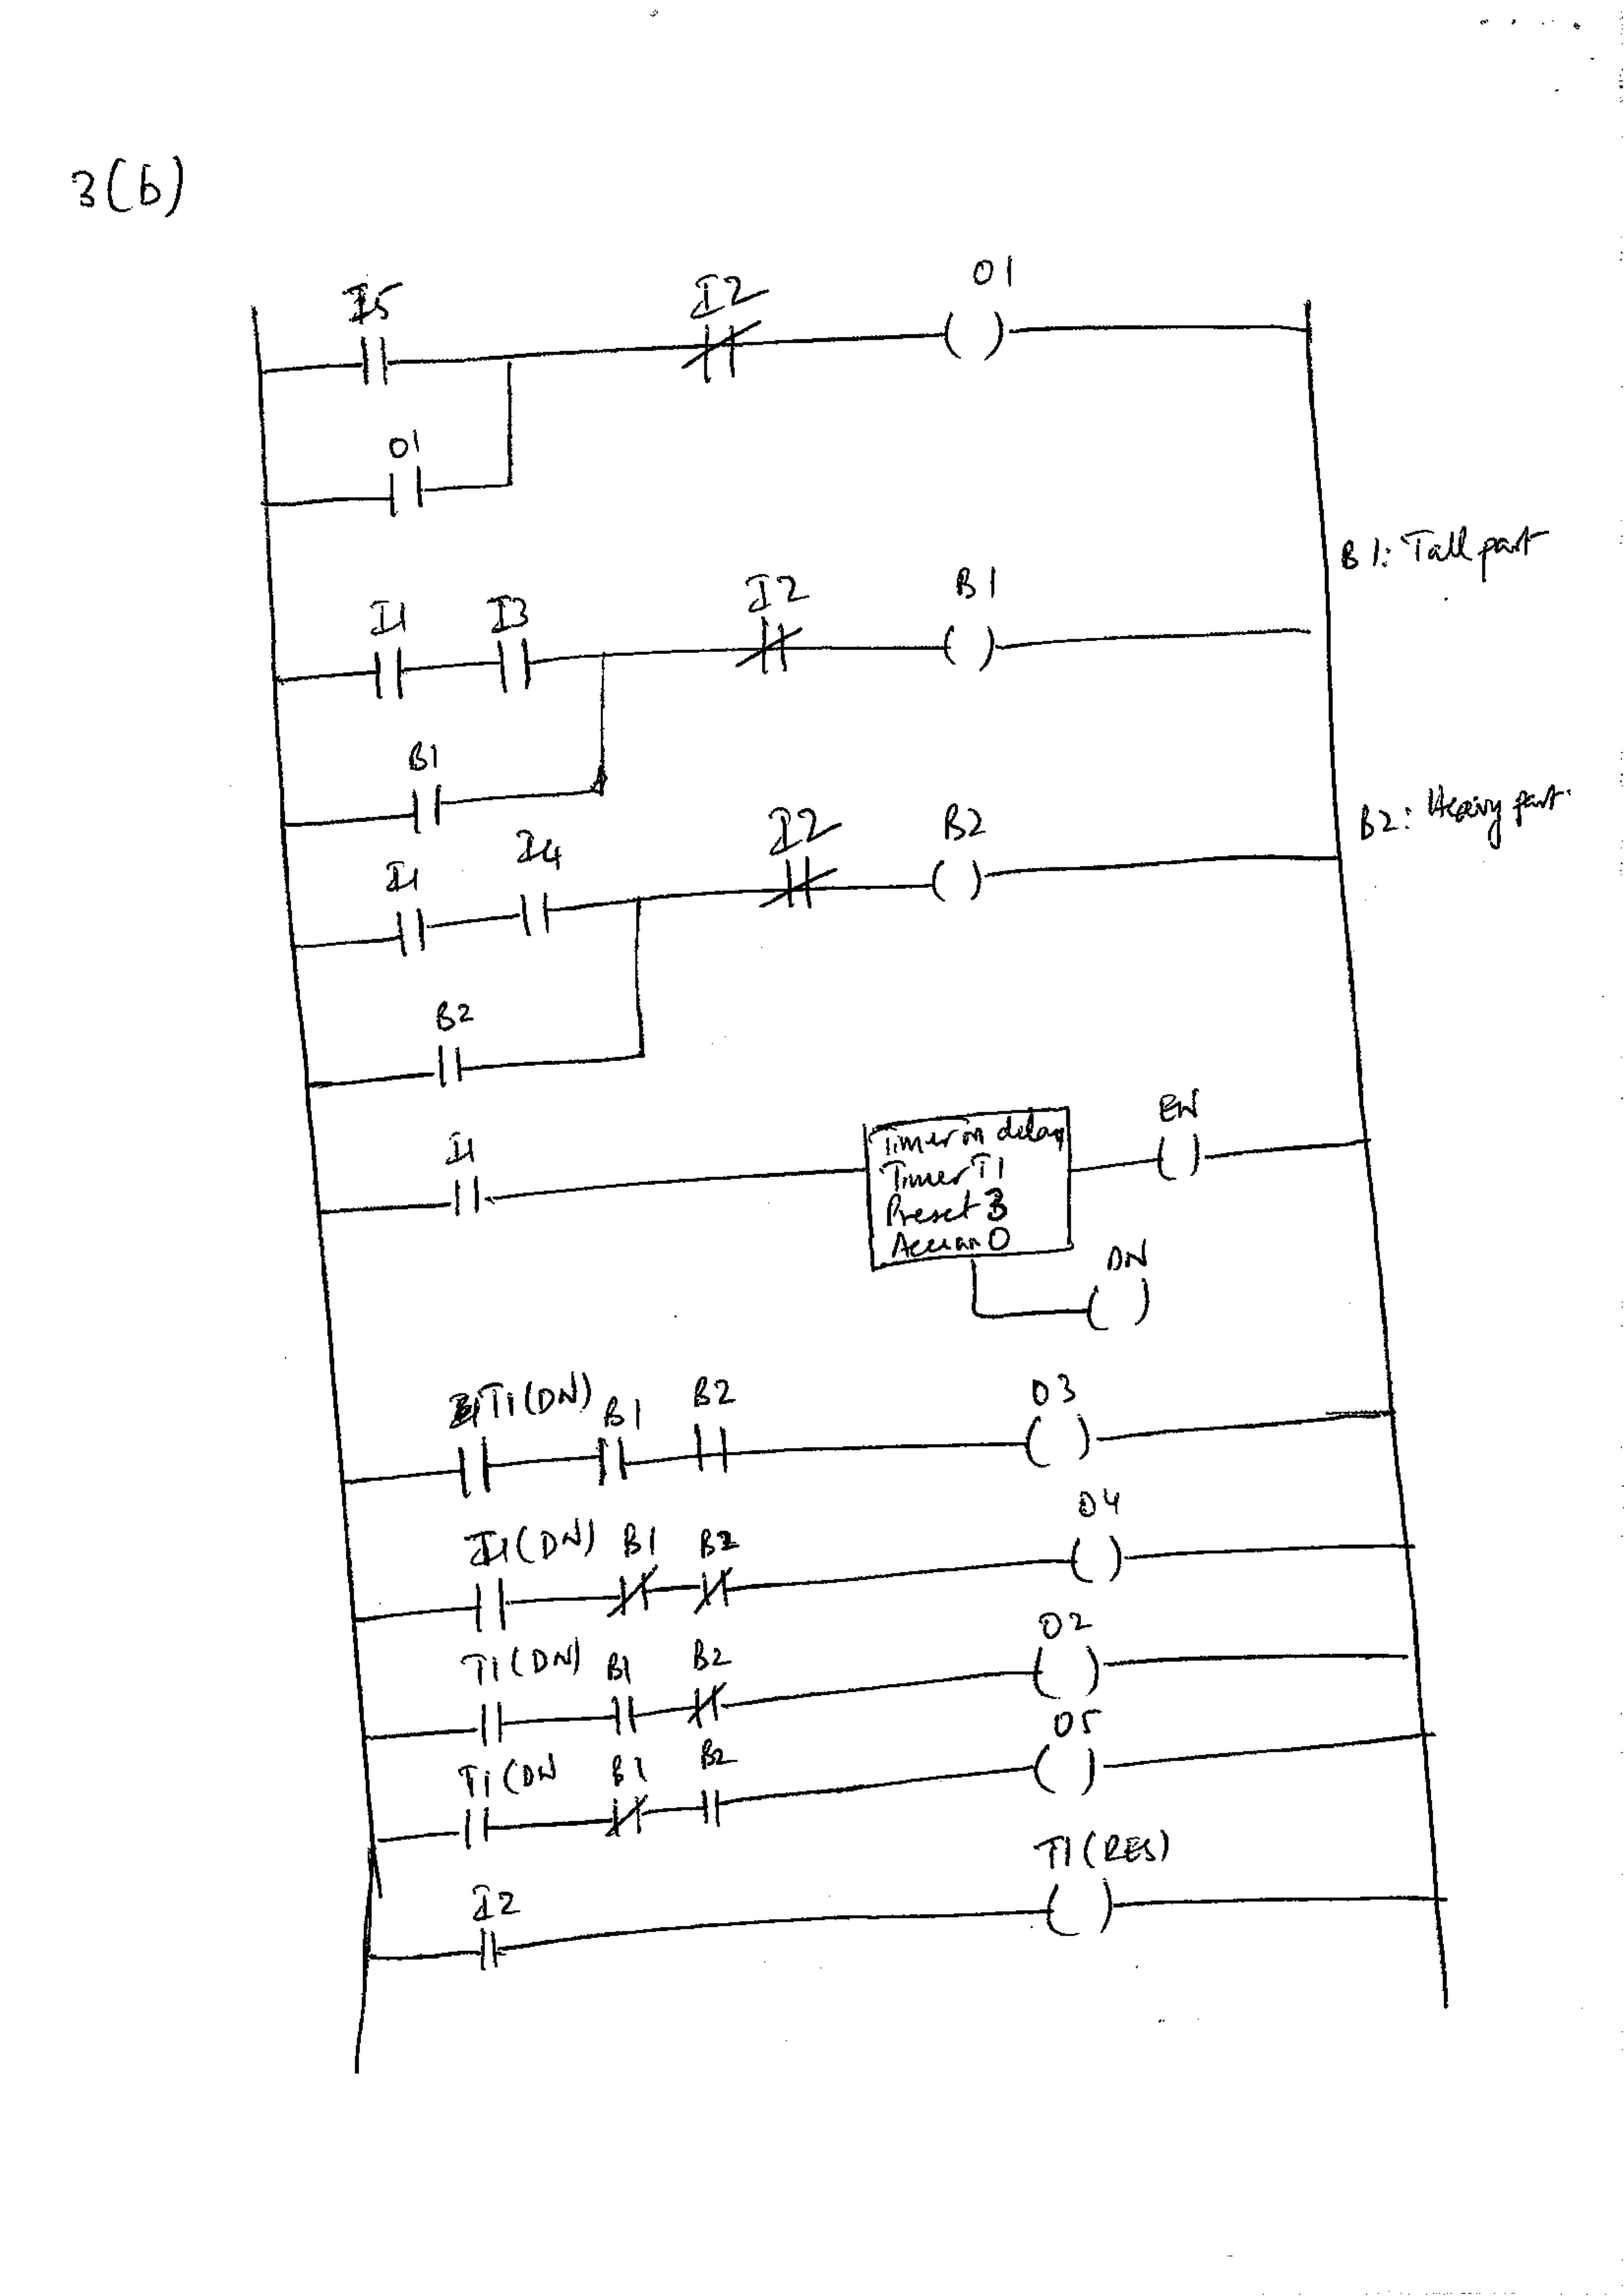 3(b)
I5 I2 O1
O1
B1: Tall part
I1 I3 I2 B1
B1
B2: Heavy part.
I1 I4 I2 B2
B2
I1 EN
Timer on delay
Timer T1
Preset 3
Accum 0
DN
T1(DN) B1 B2 O3
I1(DN) B1 B2 O4
T1(DN) B1 B2 O2
T1(DN B1 B2 O5
T1(RES)
I2